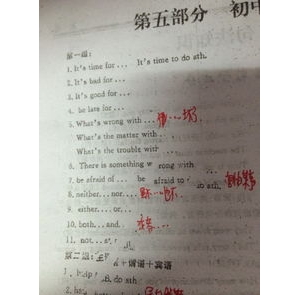 第五部分 初中
第一组:
1. It's time for... It's time to do sth.
2. It's bad for...
3. It's good for...
4. be late for...
5. What's wrong with...
What's the matter with...
What's the trouble with...
6. There is something wrong with
7. be afraid of... be afraid to do sth.
8. neither... nor...
9. either... or...
10. both... and
11. not...
第二组: +谓语+宾语
1. help sb. do sth
2.